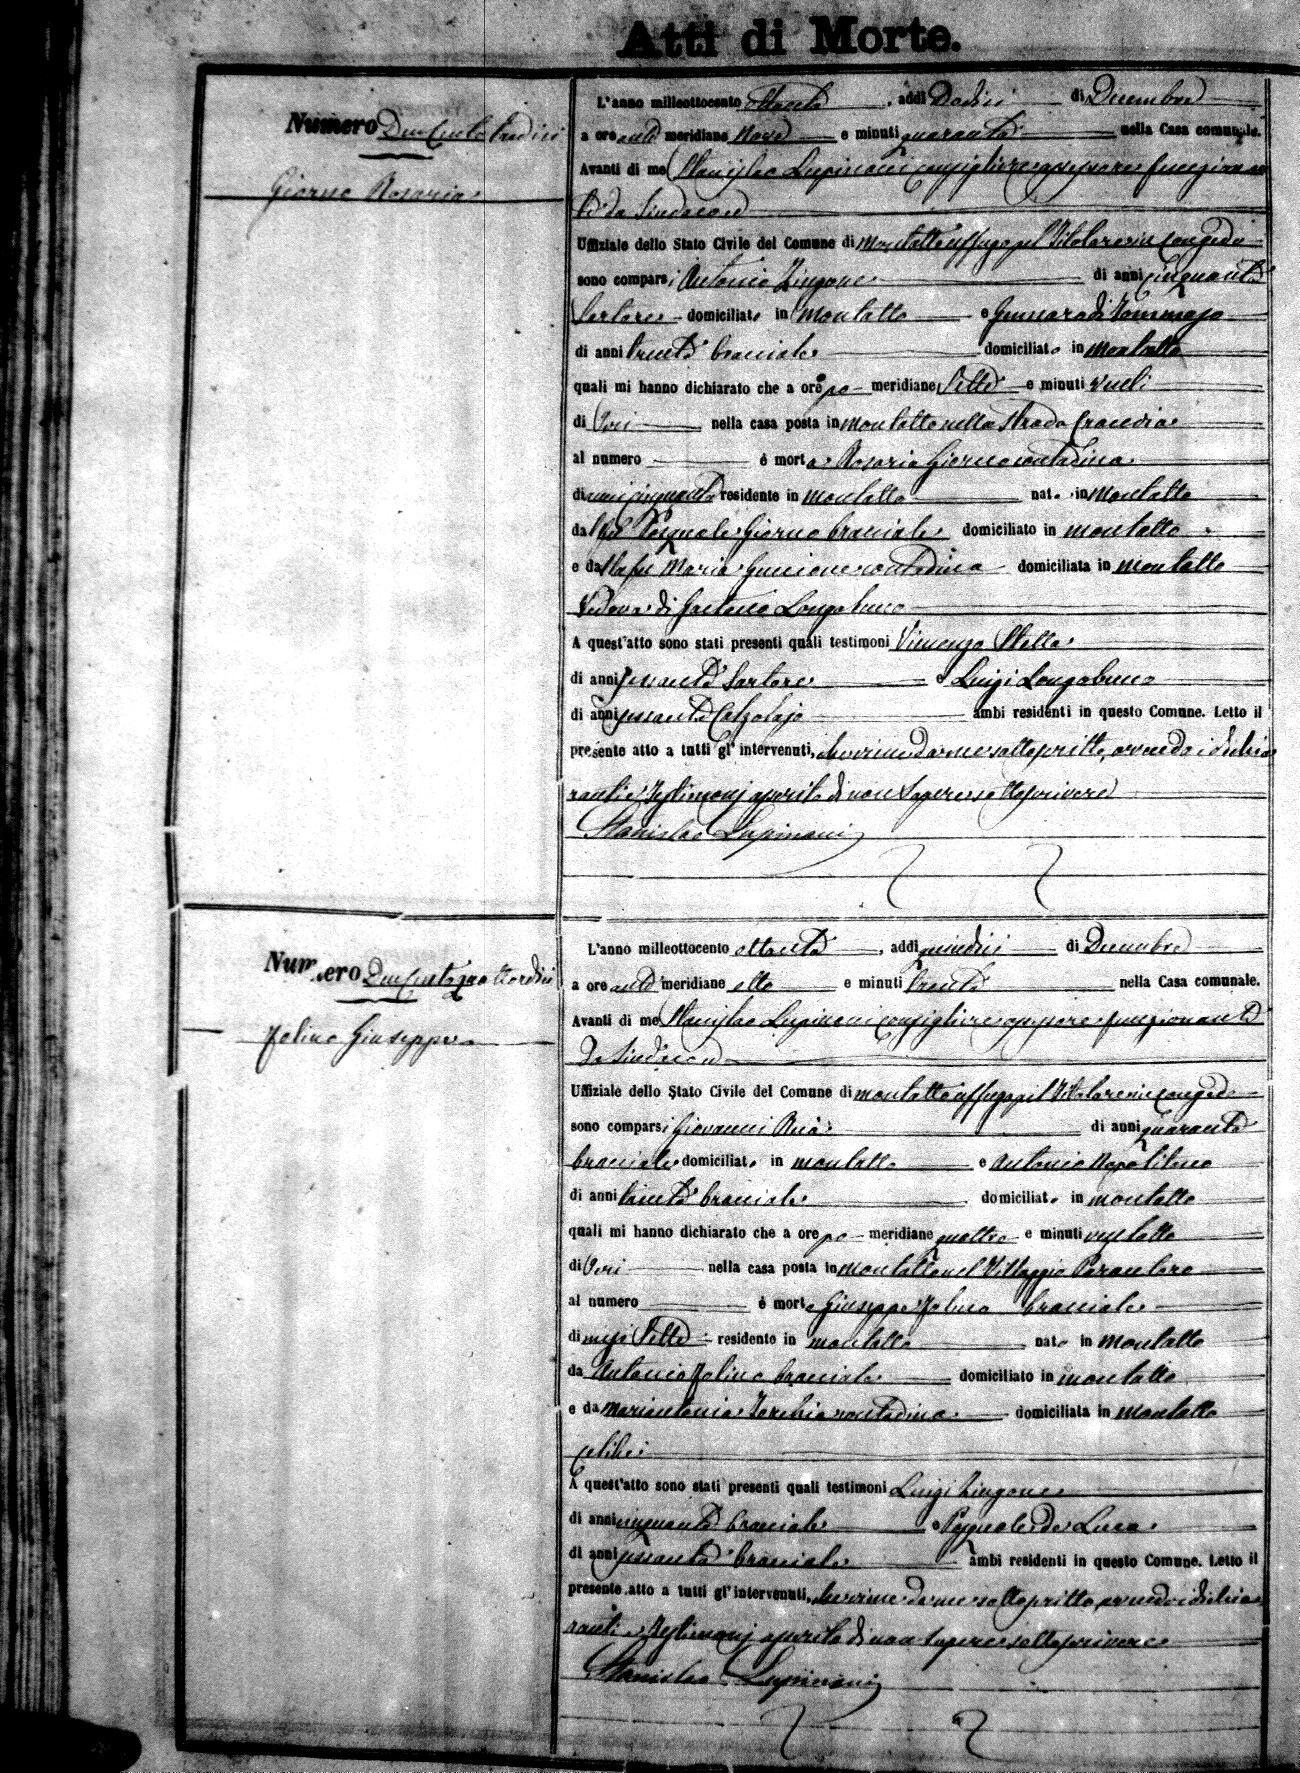 Atti di Morte.
Numero Duecentotredici
Giorno Rosaria
L'anno milleottocento ottanta, addì Dodici di Decembre
a ore anti meridiane Nove e minuti quaranta nella Casa comunale.
Avanti di me Stanislao Lupinacci consigliere assessore funzionan
te da Sindaco
Uffiziale dello Stato Civile del Comune di Montalto Uffugo pel Titolare in congedo
sono comparsi Antonio Zingone di anni cinquanta
Sartore domiciliato in Montalto e Gennaro di Tommaso
di anni trenta bracciale domiciliato in Montalto
quali mi hanno dichiarato che a ore po meridiane Sette e minuti venti
di Ieri nella casa posta in Montalto nella Strada
al numero è morta Rosaria Giorno contadina
di anni cinquanta residente in Montalto nata in Montalto
dal fu Pasquale Giorno bracciale domiciliato in Montalto
e dalla fu Maria Guccione contadina domiciliata in Montalto
Vedova di Gaetano Longobuco
A quest'atto sono stati presenti quali testimoni Vincenzo Stella
di anni sessanta Sartore e Luigi Longobuco
di anni sessanta Calzolajo ambi residenti in questo Comune. Letto il
presente atto a tutti gl'intervenuti, derviene da me sottoscritto, avendo i dichia
ranti e Testimonj asserito di non sapere sottoscrivere
Stanislao Lupinacci
Numero Duecentoquattordici
Folino Giuseppe
L'anno milleottocento ottanta, addì quindici di Decembre
a ore anti meridiane otto e minuti trenta nella Casa comunale.
Avanti di me Stanislao Lupinacci consigliere assessore funzionante
da Sindaco
Uffiziale dello Stato Civile del Comune di Montalto Uffugo pel Titolare in congedo
sono comparsi Giovanni di anni quaranta
bracciale domiciliato in Montalto e Antonio Napolitano
di anni trenta bracciale domiciliato in Montalto
quali mi hanno dichiarato che a ore po meridiane quattro e minuti
di Ieri nella casa posta in Montalto nel Villaggio Parantoro
al numero è morto Giuseppe Folino bracciale
di mesi Sette residente in Montalto nato in Montalto
da Antonio Folino bracciale domiciliato in Montalto
e da Mariantonia contadina domiciliata in Montalto
celibe
A quest'atto sono stati presenti quali testimoni Luigi Zingone
di anni cinquanta bracciale e Pasquale de Luca
di anni sessanta bracciale ambi residenti in questo Comune. Letto il
presente atto a tutti gl'intervenuti, derviene da me sottoscritto, avendo i dichia
ranti e Testimonj asserito di non sapere sottoscrivere
Stanislao Lupinacci